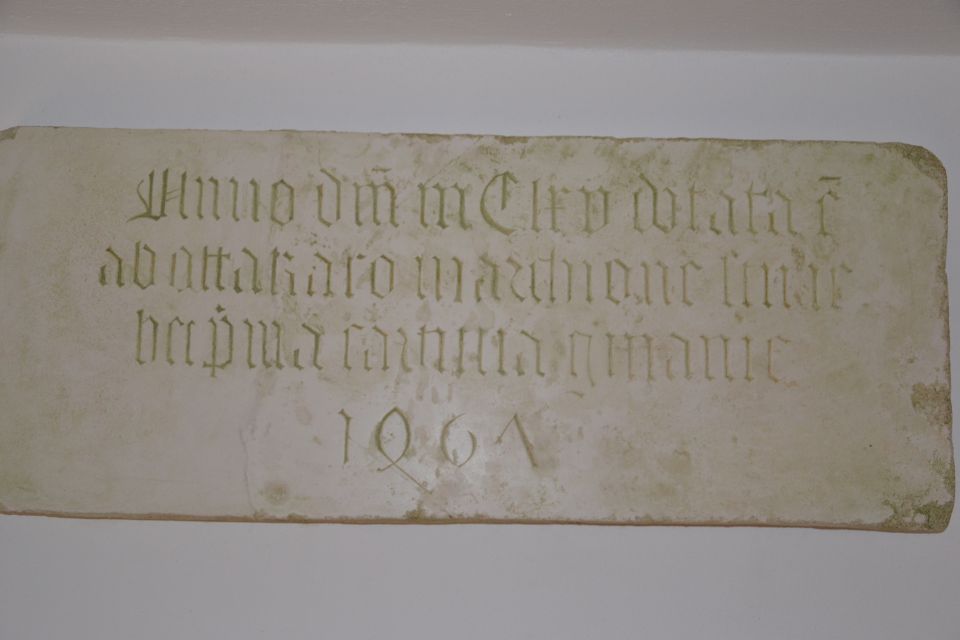 Anno dm̄ mClxv dotata ē
ab ottakaro marchione stirie
hec p̄ma cartusia gmanie
1467